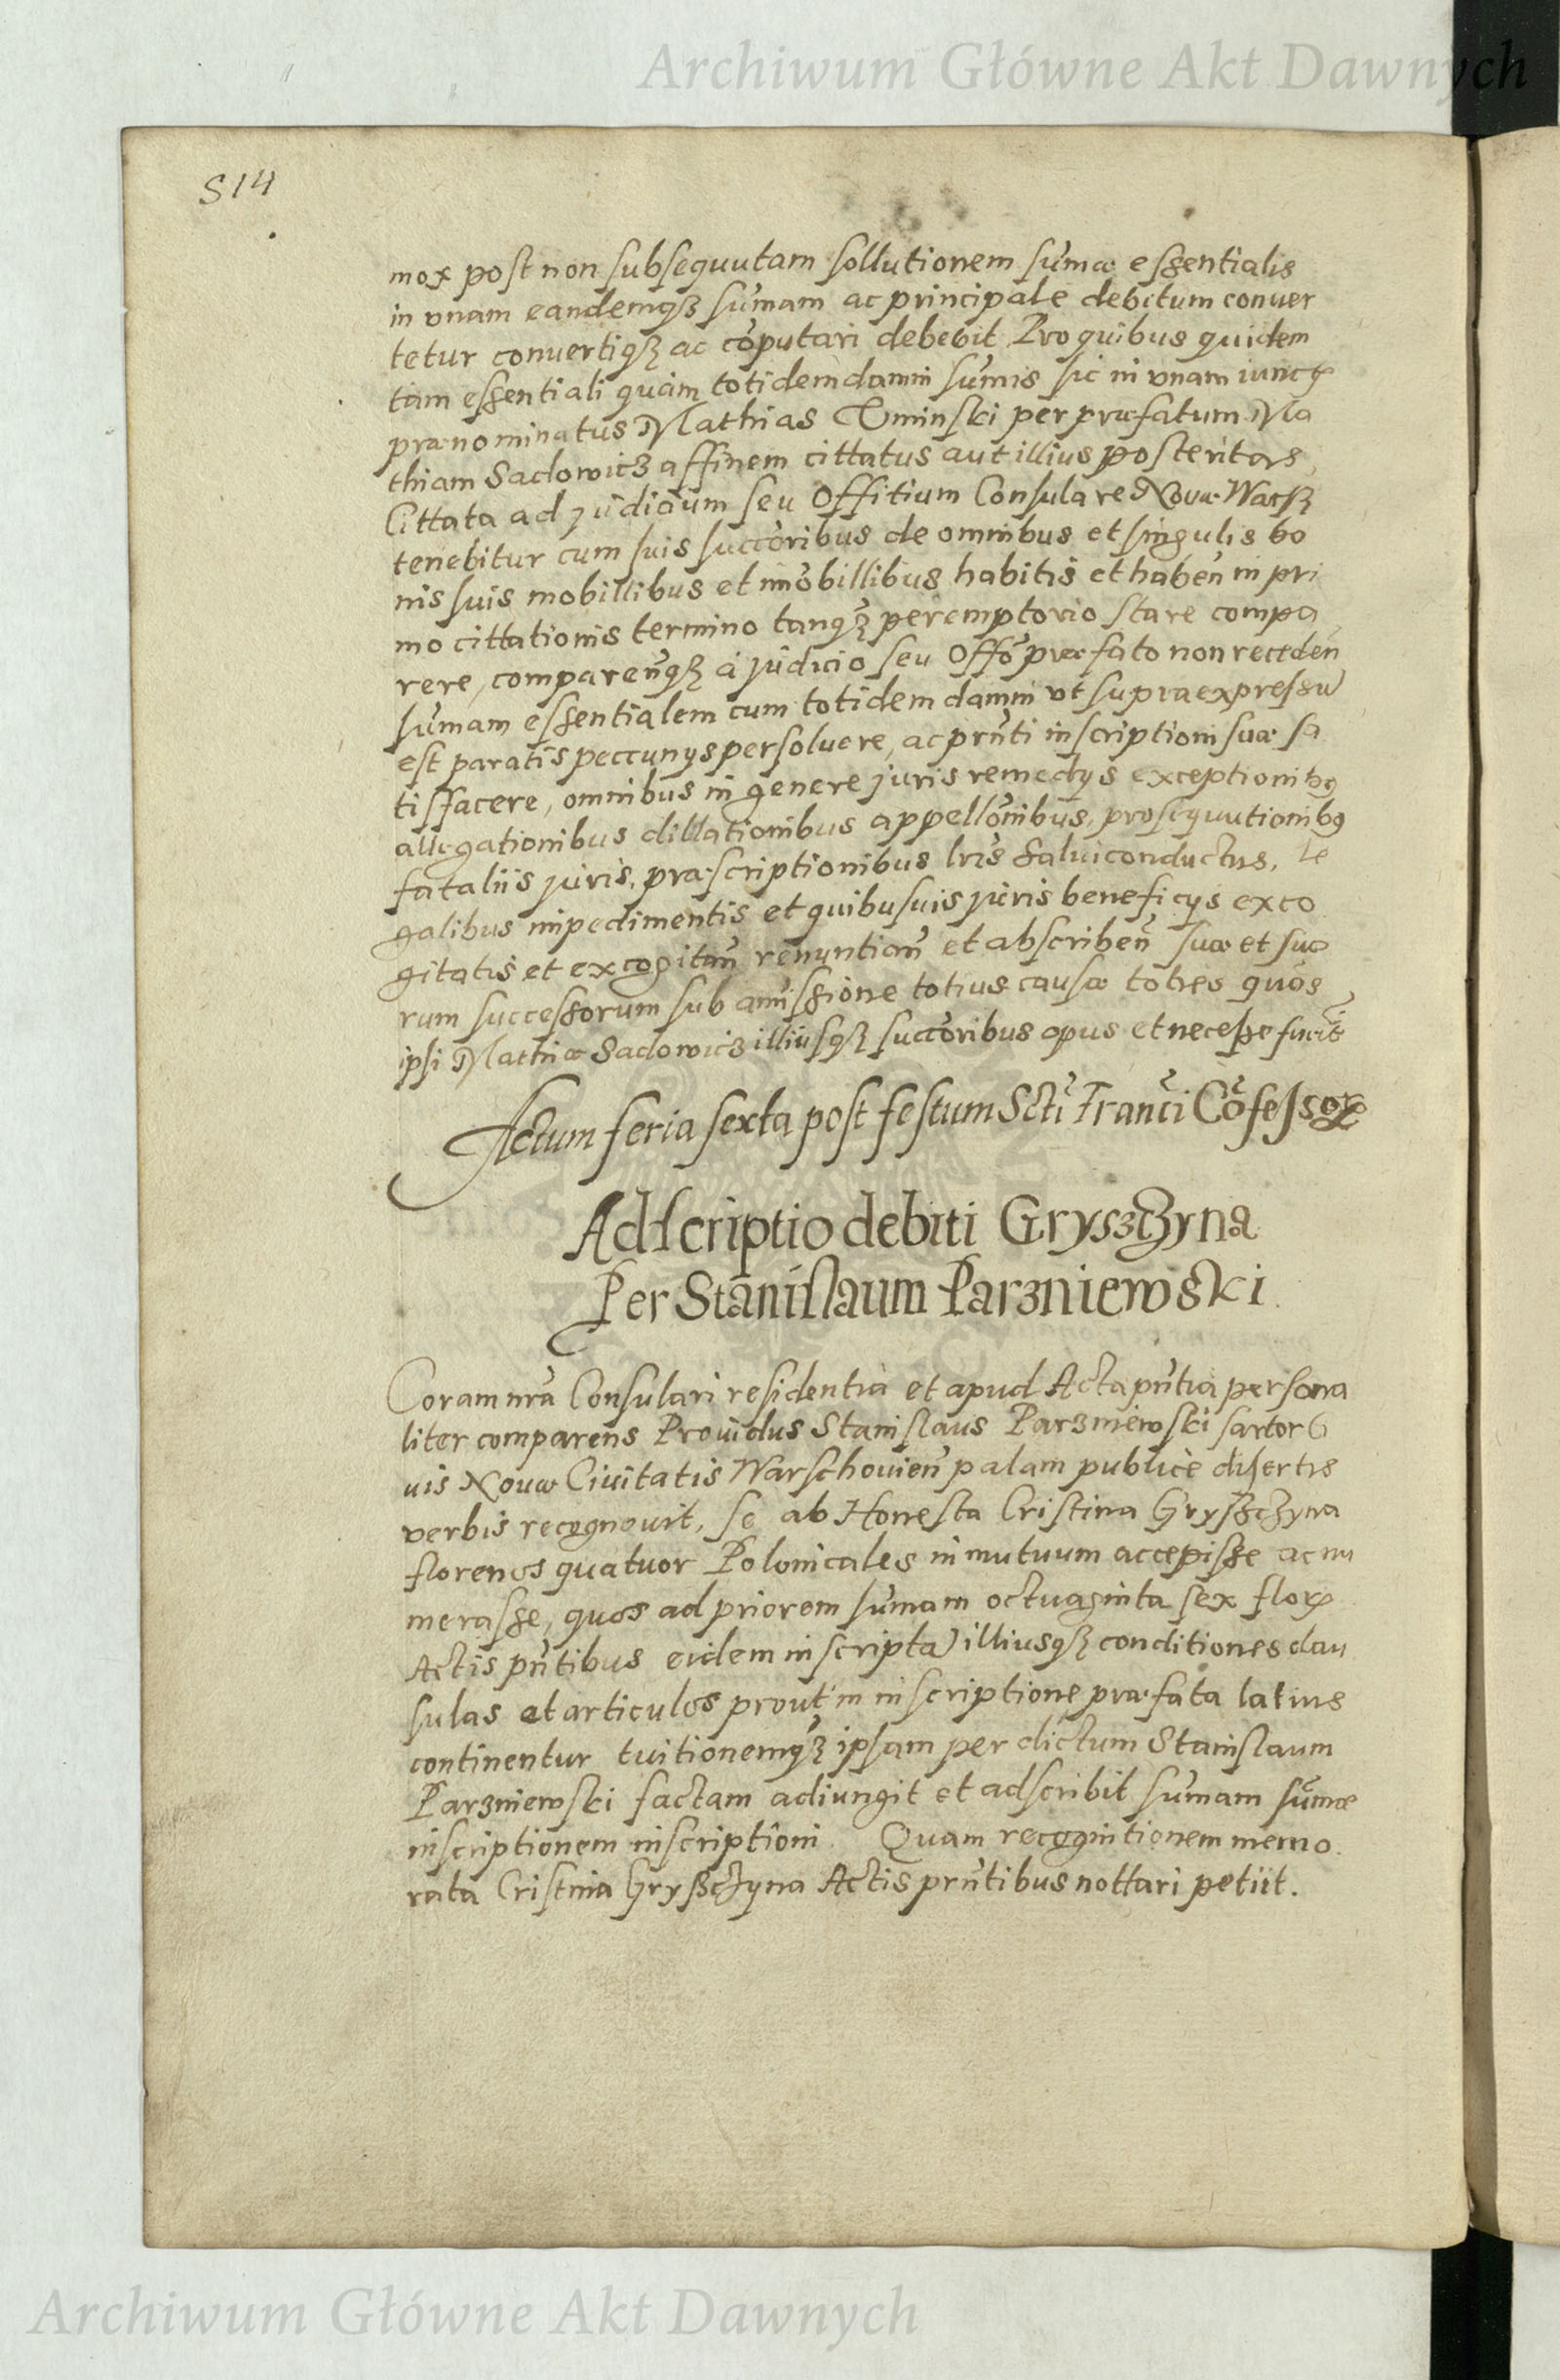 Archiwum Główne Akt Dawnych
514
mox post non subsequutam sollutionem sum̄æ essentialis
in vnam eandemqȝ sum̄am ac principale debitum conuer
tetur conuertiqȝ ac cōputari debebit Pro quibus quidem
tam essentiali quàm totidem damni sum̄is sic in vnam iunctꝭ
prænominatus Mathias Vminski per præfatum Ma
thiam Sadowicz affinem cittatus aut illius posteritas
Cittata ad judicium seu Offitium Consulare Nouæ Warsȝ
tenebitur cum suis succōribus de omnibus et singulis bo
nis suis mobillibus et im̄obillibus habitis et habeñ in pri
mo cittationis termino tanqȝ peremptorio stare compa
rere, compareñqȝ à judicio seu Offō præfato non recedeñ
sum̄am essentialem cum totidem damni vt supra expressū
est paratis peccunys persoluere, ac prñti inscriptioni suæ sa
tisfacere, omnibus in genere juris remedys exceptionibꝰ
allegationibus dillationibus appellōnibus, prosequutionibꝰ
fataliis juris, præscriptionibus lr̄is saluiconductus, le
galibus impedimentis et quibusuis juris beneficys exco
gitatis et excogitañ renuntiañ et abscribeñ suæ et suo
rum successorum sub amissione totius causæ toties quōs
ipsi Mathiæ Sadowicz illiusqȝ succōribus opus et necesse fuerit
Actum feria sexta post festum Scti Franci Cōfessorꝭ
Adscriptio debiti Grysszczyna
Per Stanislaum Parzniewski
Coram nrā Consulari residentia et apud Acta pñtia persona
liter comparens Prouidus Stanislaus Parzniewski sartor Ci
uis Nouæ Ciuitatis Warschouieñ palam publicè disertis
verbis recognouit, se ab Honesta Cristina Gryszczyna
florenos quatuor Polonicales in mutuum accepisse ac nu
merasse, quos ad priorem sum̄am octuaginta sex florꝭ
Actis pñtibus eidem inscriptā illiusqȝ conditiones clau
sulas et articulos prout in inscriptione præfata latius
continentur tuitionemqȝ ipsam per dictum Stanislaum
Parzniewski factam adiungit et adscribit sum̄am sum̄æ
inscriptionem inscriptioni. Quam recognitionem memo
rata Cristina Gryszczyna Actis prñtibus nottari petiit.
Archiwum Główne Akt Dawnych